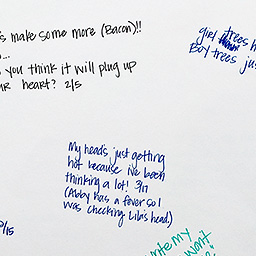 s make some more (Bacon)!!
...
you think it will plug up
heart? 2/5
girl trees h
Boy trees jus
My heads just getting
hot because i've been
thinking a lot! 3/17
(Abby has a fever so I
was checking Lila's head)
/15
my
want